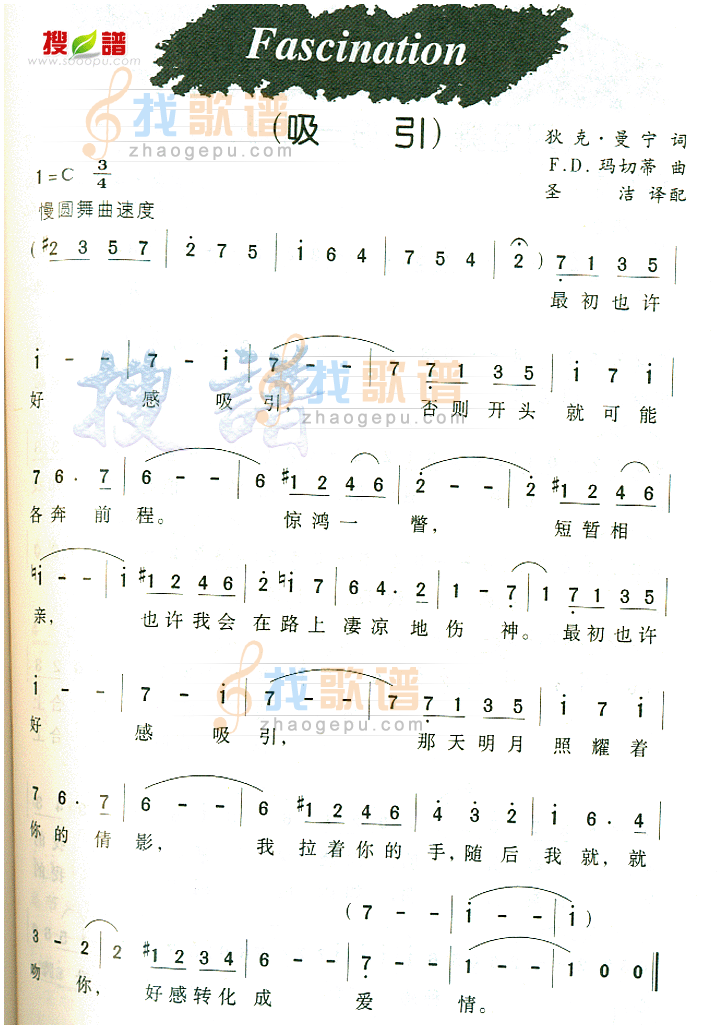 搜 谱
www.sooopu.com
Fascination
找歌谱
zhaogepu.com
(吸 引)
狄克·曼宁 词
F.D.玛切蒂 曲
圣 洁 译配
1=C 3/4
慢圆舞曲速度
(#2 3 5 7 | 2̇ 7 5 | 1̇ 6 4 | 7 5 4 | 2̇) 7̣ 1 3 5 |
最初也许
1̇ - - | 7 - 1̇ | 7 - - | 7 7̣ 1 3 5 | 1̇ 7 1̇ |
好 感 吸 引, 否则 开头 就可能
搜谱
找歌谱
zhaogepu.com
7 6 · 7 | 6 - - | 6 #1 2 4 6 | 2̇ - - | 2̇ #1 2 4 6 |
各奔 前 程。 惊鸿一 瞥, 短暂相
♮1̇ - - | 1̇ #1 2 4 6 | 2̇ ♮1̇ 7 | 6 4 · 2 | 1 - 7̣ | 7̣ 1 3 5 |
亲, 也许我会 在路上 凄凉 地伤 神。 最初也许
找歌谱
zhaogepu.com
1̇ - - | 7 - 1̇ | 7 - - | 7 7̣ 1 3 5 | 1̇ 7 1̇ |
好 感 吸 引, 那天明月 照耀着
找歌谱
zhaogepu.com
7 6 · 7 | 6 - - | 6 #1 2 4 6 | 4̇ 3̇ 2̇ | 1̇ 6 · 4 |
你的 倩 影, 我 拉着你的 手,随后 我就,就
(7 - - | 1̇ - - | 1̇)
3 - 2 | 2 #1 2 3 4 | 6 - - | 7̣ - - | 1 - - | 1 0 0 ‖
吻 你, 好感转化 成 爱 情。